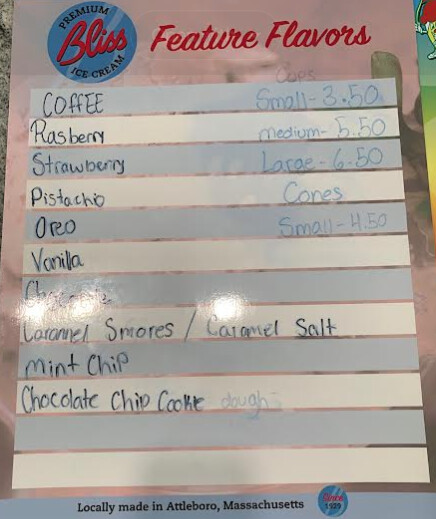 PREMIUM
Bliss
ICE CREAM
Feature Flavors
Cups
COFFEE Small - 3.50
Rasberry medium - 5.50
Strawberry Large - 6.50
Pistachio Cones
Oreo Small - 4.50
Vanilla
Chocolate
Caramel Smores / Caramel Salt
mint Chip
Chocolate Chip Cookie dough
Locally made in Attleboro, Massachusetts
Since
1929